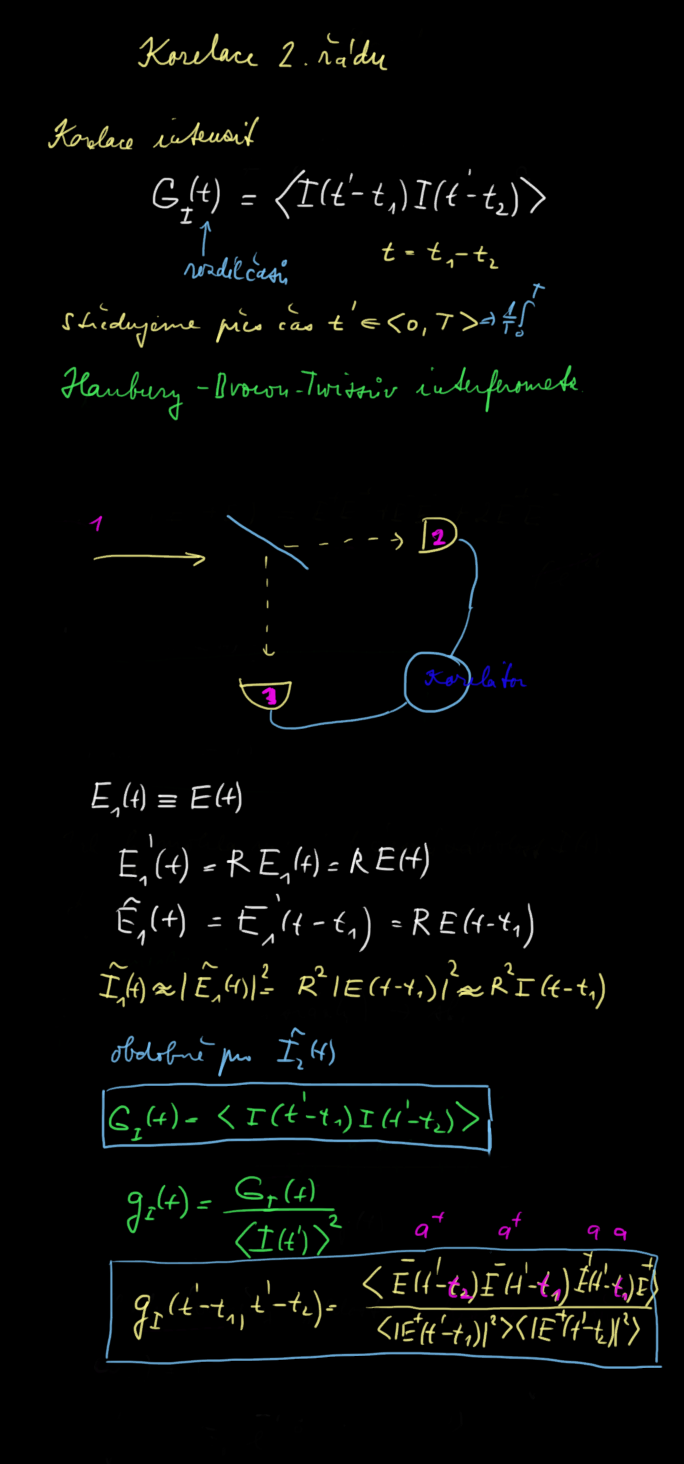 Korelace 2. řádu
Korelace intensit
G_I(t) = <I(t'-t_1) I(t'-t_2)>
rozdíl časů
t = t_1 - t_2
Středujeme přes čas t' ∈ <0, T> ⇒ 1/T ∫_0^T
Hanbury-Brown-Twissův interferometr
1
2
3
Korelátor
E_1(t) ≡ E(t)
E_1'(t) = R E_1(t) = R E(t)
Ê_1(t) = E_1'(t-t_1) = R E(t-t_1)
Ĩ_1(t) ≈ |Ẽ_1(t)|^2 = R^2 |E(t-t_1)|^2 ≈ R^2 I(t-t_1)
obdobně pro Î_2(t)
G_I(t) = <I(t'-t_1) I(t'-t_2)>
g_I(t) = G_I(t) / <I(t')>^2
a^+ a^+ a a
g_I(t'-t_1, t'-t_2) = <E^-(t'-t_2) E^-(t'-t_1) E^+(t'-t_1) E^+> / <|E^+(t'-t_1)|^2> <|E^+(t'-t_2)|^2>